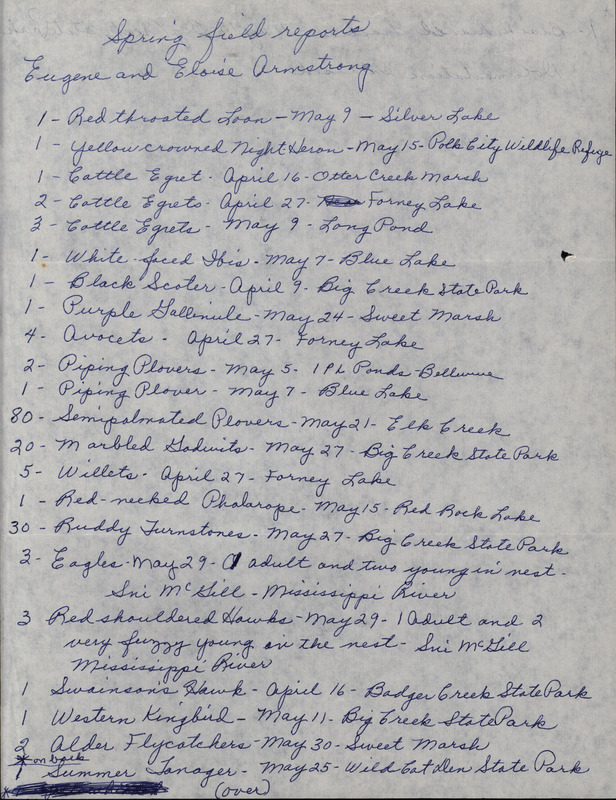 Spring field reports
Eugene and Eloise Armstrong
1 - Red throated Loon - May 9 - Silver Lake
1 - Yellow crowned Night Heron - May 15 - Polk City Wildlife Refuge
1 - Cattle Egret - April 16 - Otter Creek Marsh
2 - Cattle Egrets - April 27 - Forney Lake
3 - Cattle Egrets - May 9 - Long Pond
1 - White-faced Ibis - May 7 - Blue Lake
1 - Black Scoter - April 9 - Big Creek State Park
1 - Purple Gallinule - May 24 - Sweet Marsh
4 - Avocets - April 27 - Forney Lake
2 - Piping Plovers - May 5 - IPL Ponds - Bellevue
1 - Piping Plover - May 7 - Blue Lake
80 - Semipalmated Plovers - May 21 - Elk Creek
20 - Marbled Godwits - May 27 - Big Creek State Park
5 - Willets - April 27 - Forney Lake
1 - Red-necked Phalarope - May 15 - Red Rock Lake
30 - Ruddy Turnstones - May 27 - Big Creek State Park
3 - Eagles - May 29 - 1 adult and two young in nest -
Sni McGill - Mississippi River
3 Red shouldered Hawks - May 29 - 1 adult and 2
very fuzzy young in the nest - Sni McGill
Mississippi River
1 Swainson's Hawk - April 16 - Badger Creek State Park
1 Western Kingbird - May 11 - Big Creek State Park
2 Alder Flycatchers - May 30 - Sweet Marsh
* on back
1 Summer Tanager - May 25 - Wild Cat Den State Park
* (over)